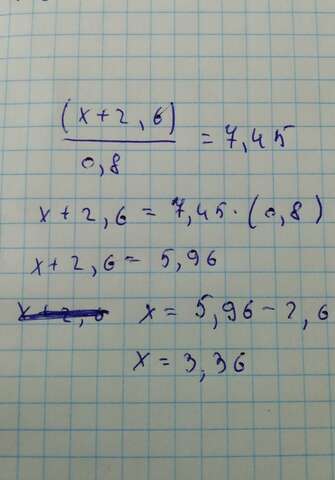 (x+2,6)
0,8
= 7,45
x+2,6 = 7,45·(0,8)
x+2,6 = 5,96
x+2,6 x = 5,96-2,6
x = 3,36